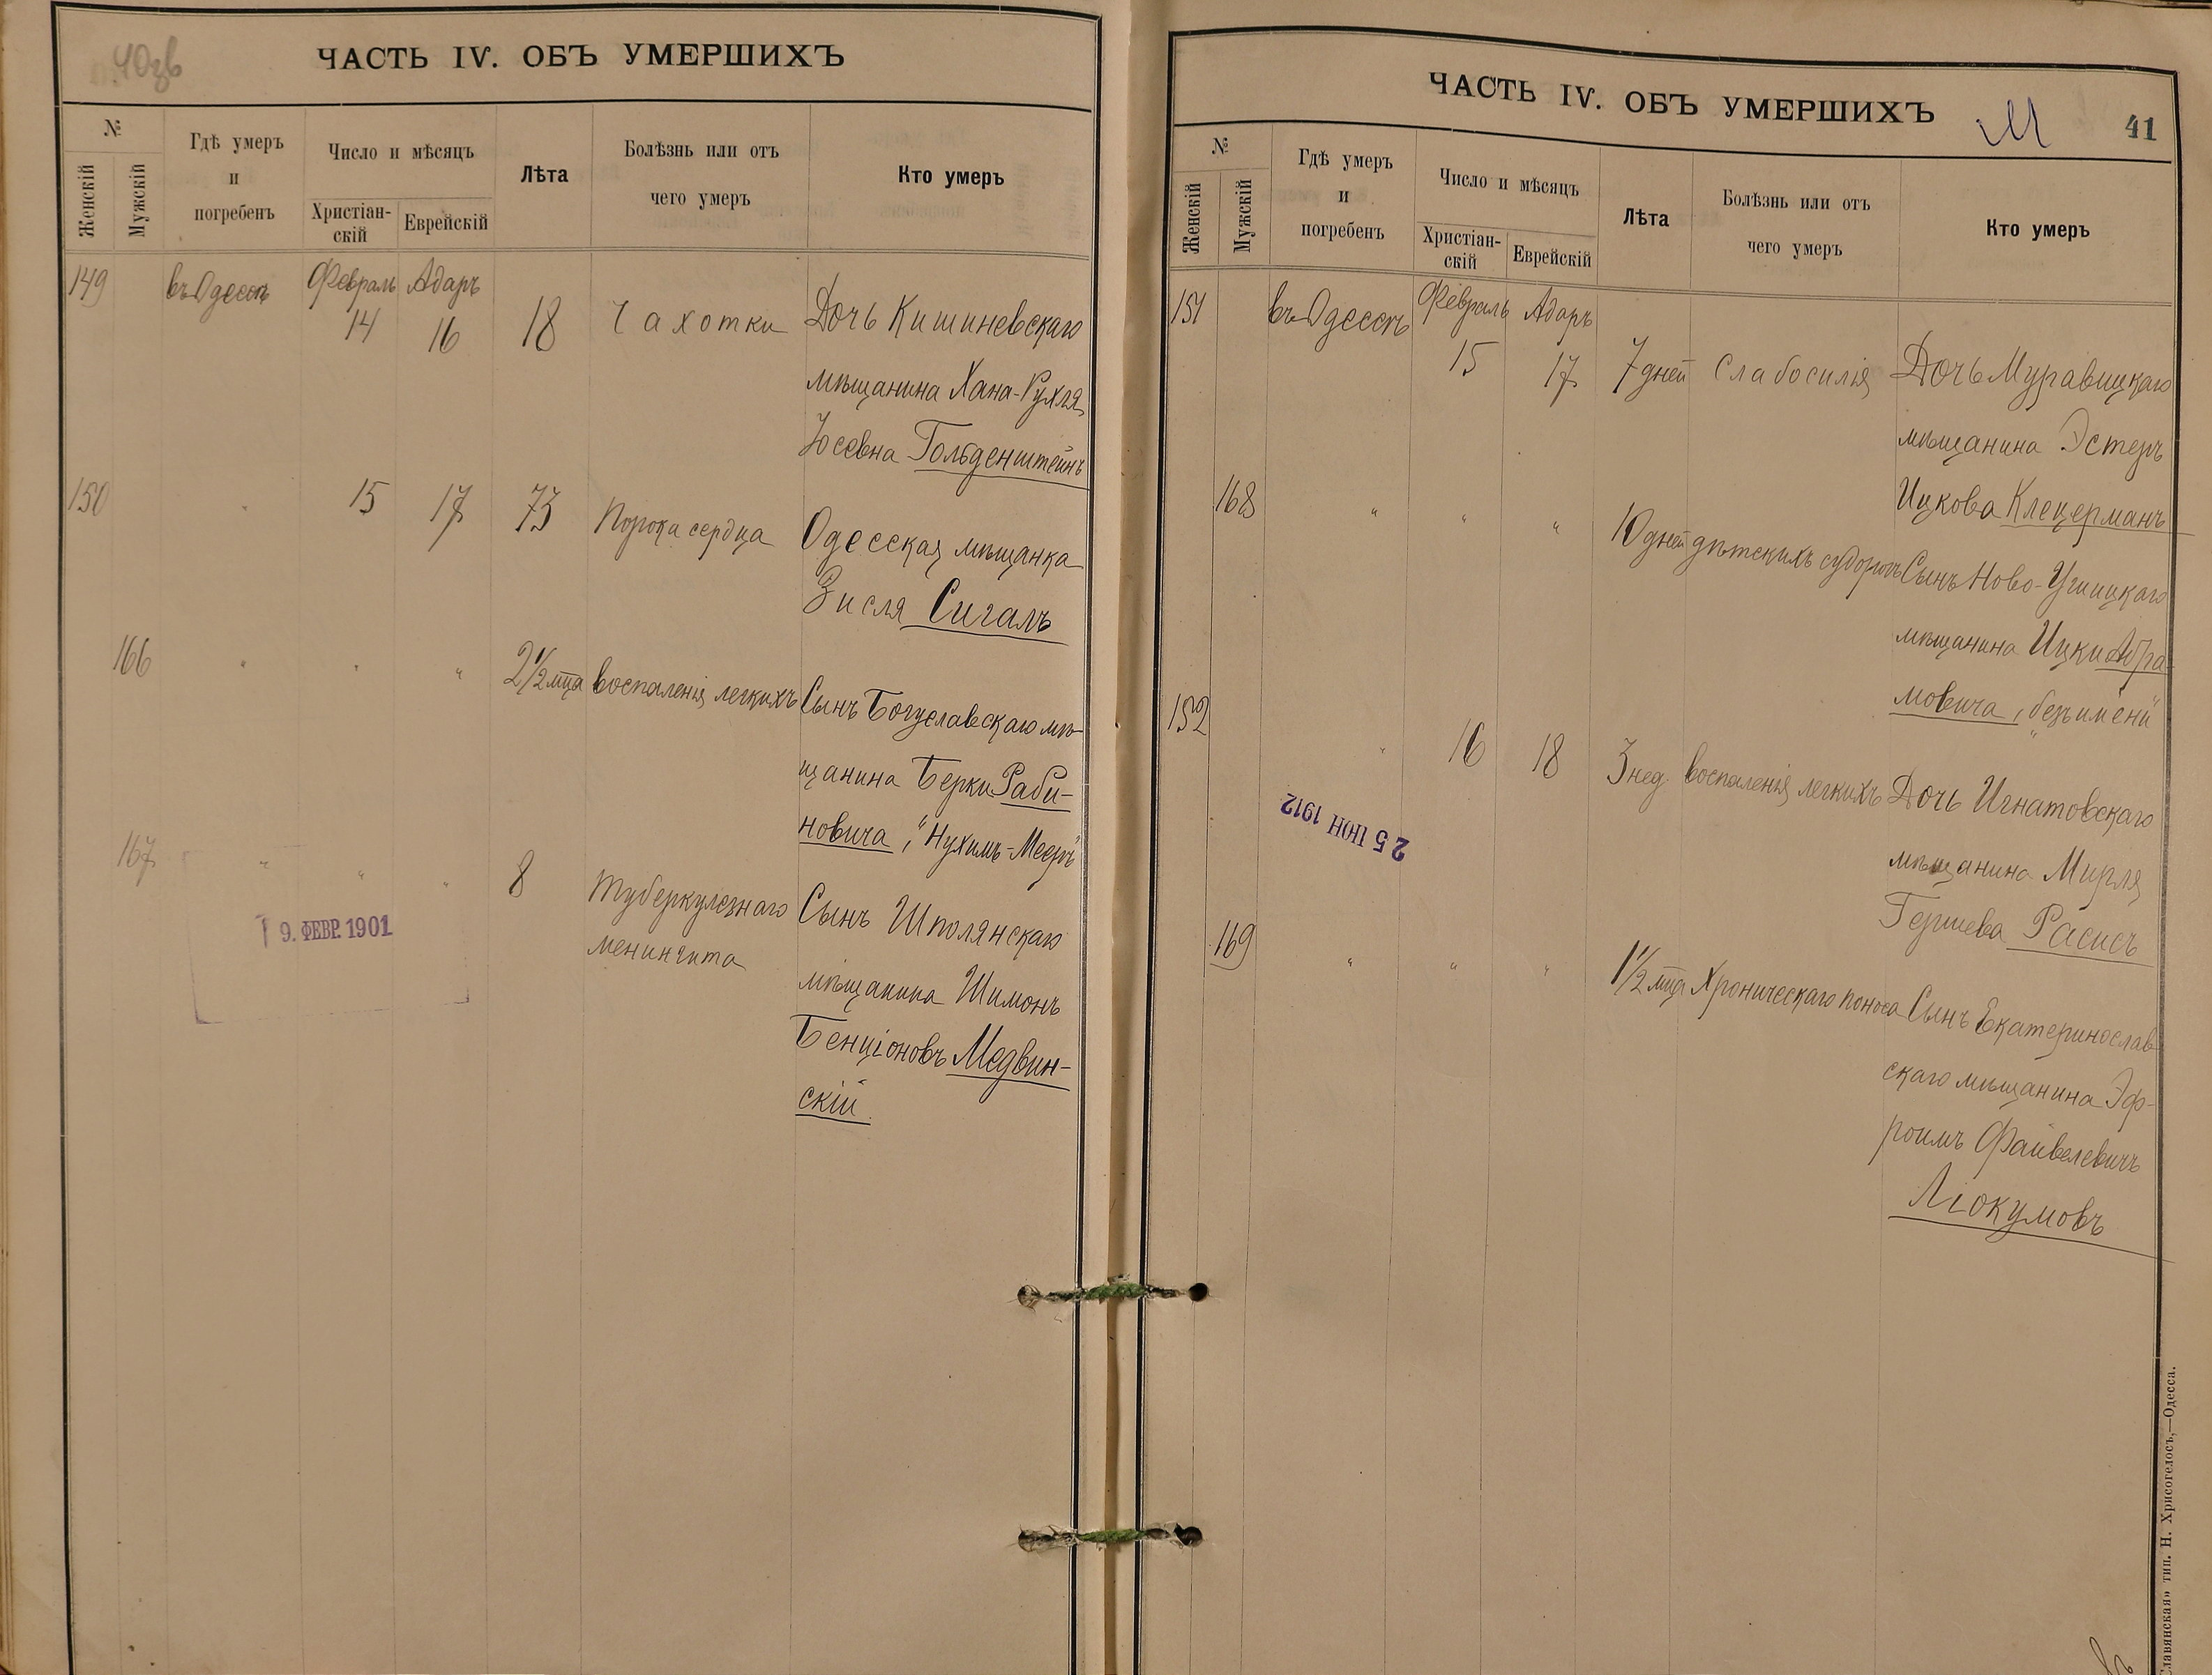 40зв
ЧАСТЬ IV. ОБЪ УМЕРШИХЪ
№
Женскій
Мужскій
Гдѣ умеръ
и
погребенъ
Число и мѣсяцъ
Христіан-
скій
Еврейскій
Лѣта
Болѣзнь или отъ
чего умеръ
Кто умеръ
149 въ Одессѣ Февраль Адаръ
14 16 18 Чахотки Дочь Кишиневскаго
мѣщанина Хана-Рухля
Іосевна Гольденштейнъ
150 " 15 17 73 Порока сердца Одесская мѣщанка
Зисля Сигалъ
166 " " " 2½ мца воспаленія легкихъ Сынъ Богуславскаго мѣ-
щанина Берки Раби-
новича, "Нухимъ-Мееръ"
167 " " " 8 Туберкулезнаго Сынъ Шполянскаго
менингита
мѣщанина Шимонъ
Бенціоновъ Медвин-
скій.
19. ФЕВР. 1901
ЧАСТЬ IV. ОБЪ УМЕРШИХЪ
41
№
Женскій
Мужскій
Гдѣ умеръ
и
погребенъ
Число и мѣсяцъ
Христіан-
скій
Еврейскій
Лѣта
Болѣзнь или отъ
чего умеръ
Кто умеръ
151 въ Одессѣ Февраль Адаръ
15 17 7 дней Слабосилія Дочь Муравицкаго
мѣщанина Эстеръ
Ицкова Клецерманъ
168 " " " 10 дней дѣтскихъ судорогъ Сынъ Ново-Ушицкаго
мѣщанина Ицки Абра-
мовича, "безъ имени"
152 " 16 18 3 нед. воспаленія легкихъ Дочь Игнатовскаго
мѣщанина Мирля
Гершева Расисъ
25 ІЮН 1912
169 " " " 1½ мца Хроническаго поноса Сынъ Екатеринослав-
скаго мѣщанина Эф-
роимъ Файвелевичъ
Ліокумовъ
Славянская» тип. Н. Хрисогелосъ,—Одесса.